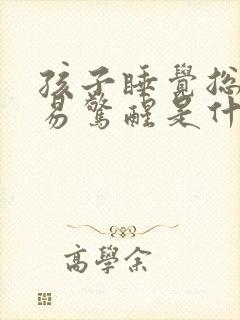 孩子睡覺總
易驚醒是什
高學余